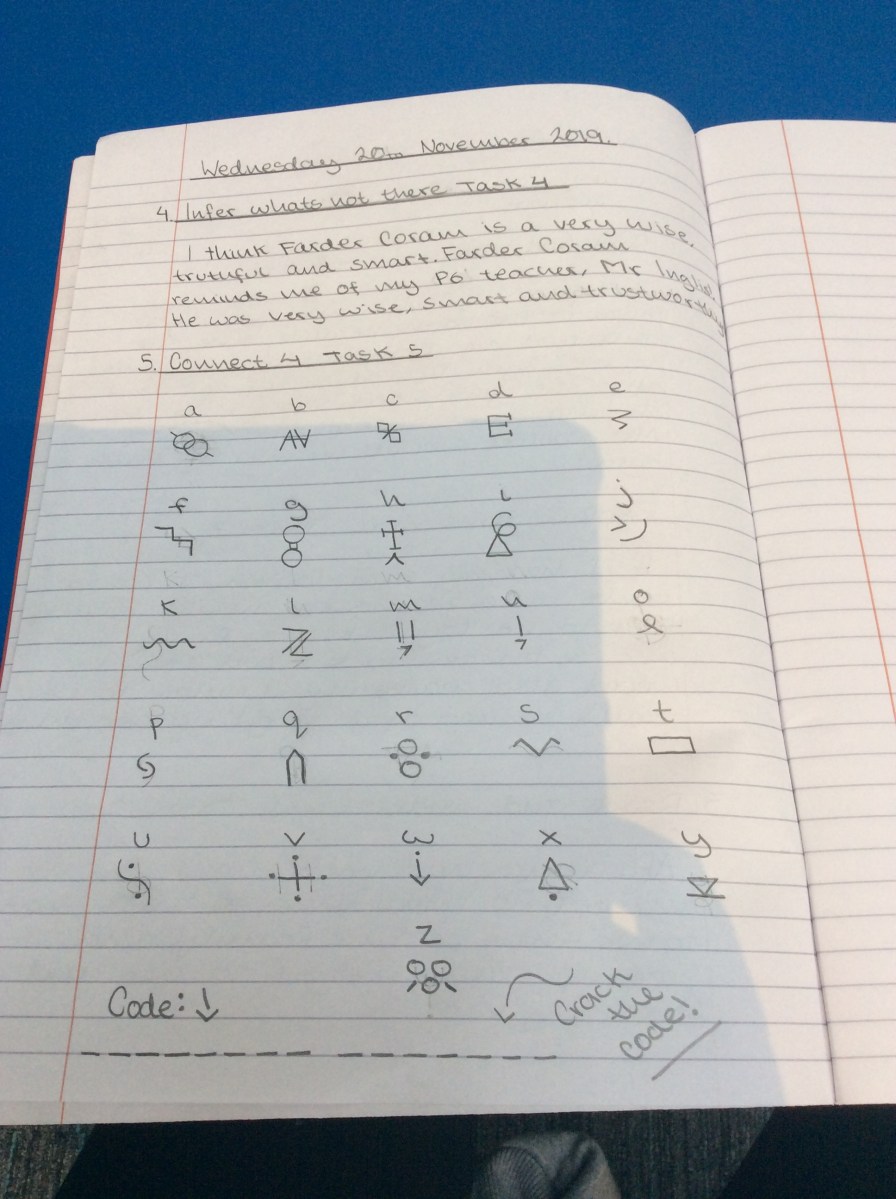 Wednesday 20th November 2019.
4. Infer whats not there Task 4
I think Farder Coram is a very wise,
truthful and smart. Farder Coram
reminds me of my P6 teacher, Mr Inglis.
He was very wise, smart and trustworthy
5. Connect 4 Task 5
a b c d e
f g h i j
k l m n o
p q r s t
u v w x y
z
Code: ↓
Crack
the
code!